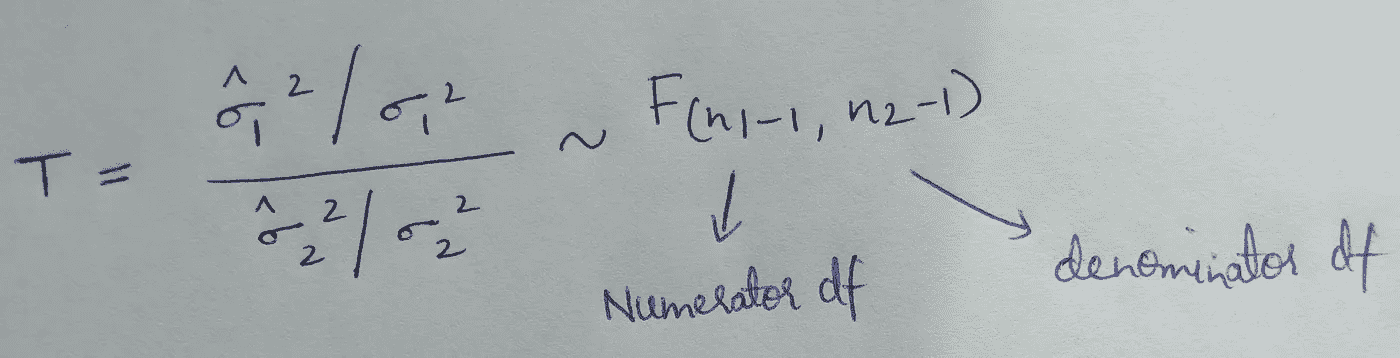 T = (σ̂₁² / σ₁²) / (σ̂₂² / σ₂²) ~ F(n₁-1, n₂-1)
Numerator df
denominator df